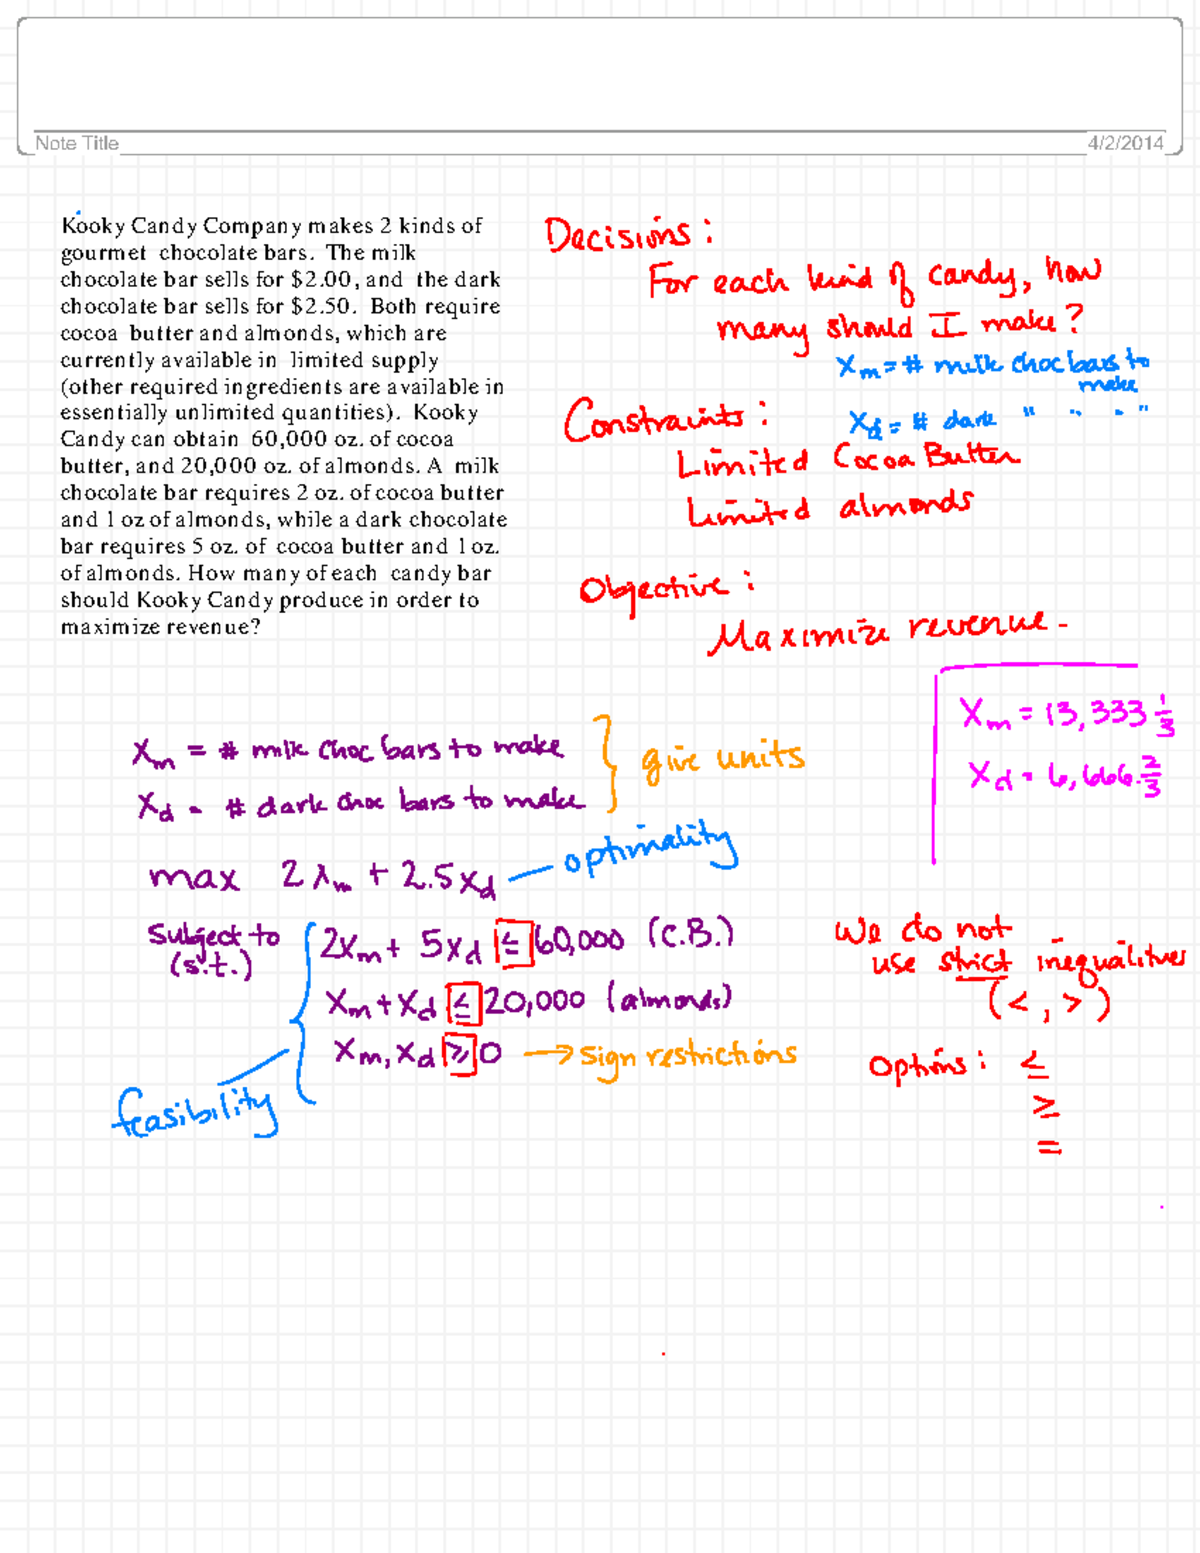 Note Title
4/2/2014
Kooky Candy Company makes 2 kinds of
gourmet chocolate bars. The milk
chocolate bar sells for $2.00, and the dark
chocolate bar sells for $2.50. Both require
cocoa butter and almonds, which are
currently available in limited supply
(other required ingredients are available in
essentially unlimited quantities). Kooky
Candy can obtain 60,000 oz. of cocoa
butter, and 20,000 oz. of almonds. A milk
chocolate bar requires 2 oz. of cocoa butter
and 1 oz of almonds, while a dark chocolate
bar requires 5 oz. of cocoa butter and 1 oz.
of almonds. How many of each candy bar
should Kooky Candy produce in order to
maximize revenue?
Decisions:
For each kind of candy, how
many should I make?
Xm = # milk choc bars to
make
Xd = # dark " " " "
Constraints:
Limited Cocoa Butter
Limited almonds
Objective:
Maximize revenue.
Xm = 13,333 1/3
Xd = 6,666 2/3
Xm = # milk choc bars to make
Xd = # dark choc bars to make
give units
max 2Xm + 2.5Xd
optimality
Subject to
(s.t.)
2Xm + 5Xd ≤ 60,000 (C.B.)
Xm + Xd ≤ 20,000 (almonds)
Xm, Xd ≥ 0 → sign restrictions
feasibility
We do not
use strict inequalities
(<, >)
Options: ≤
≥
=